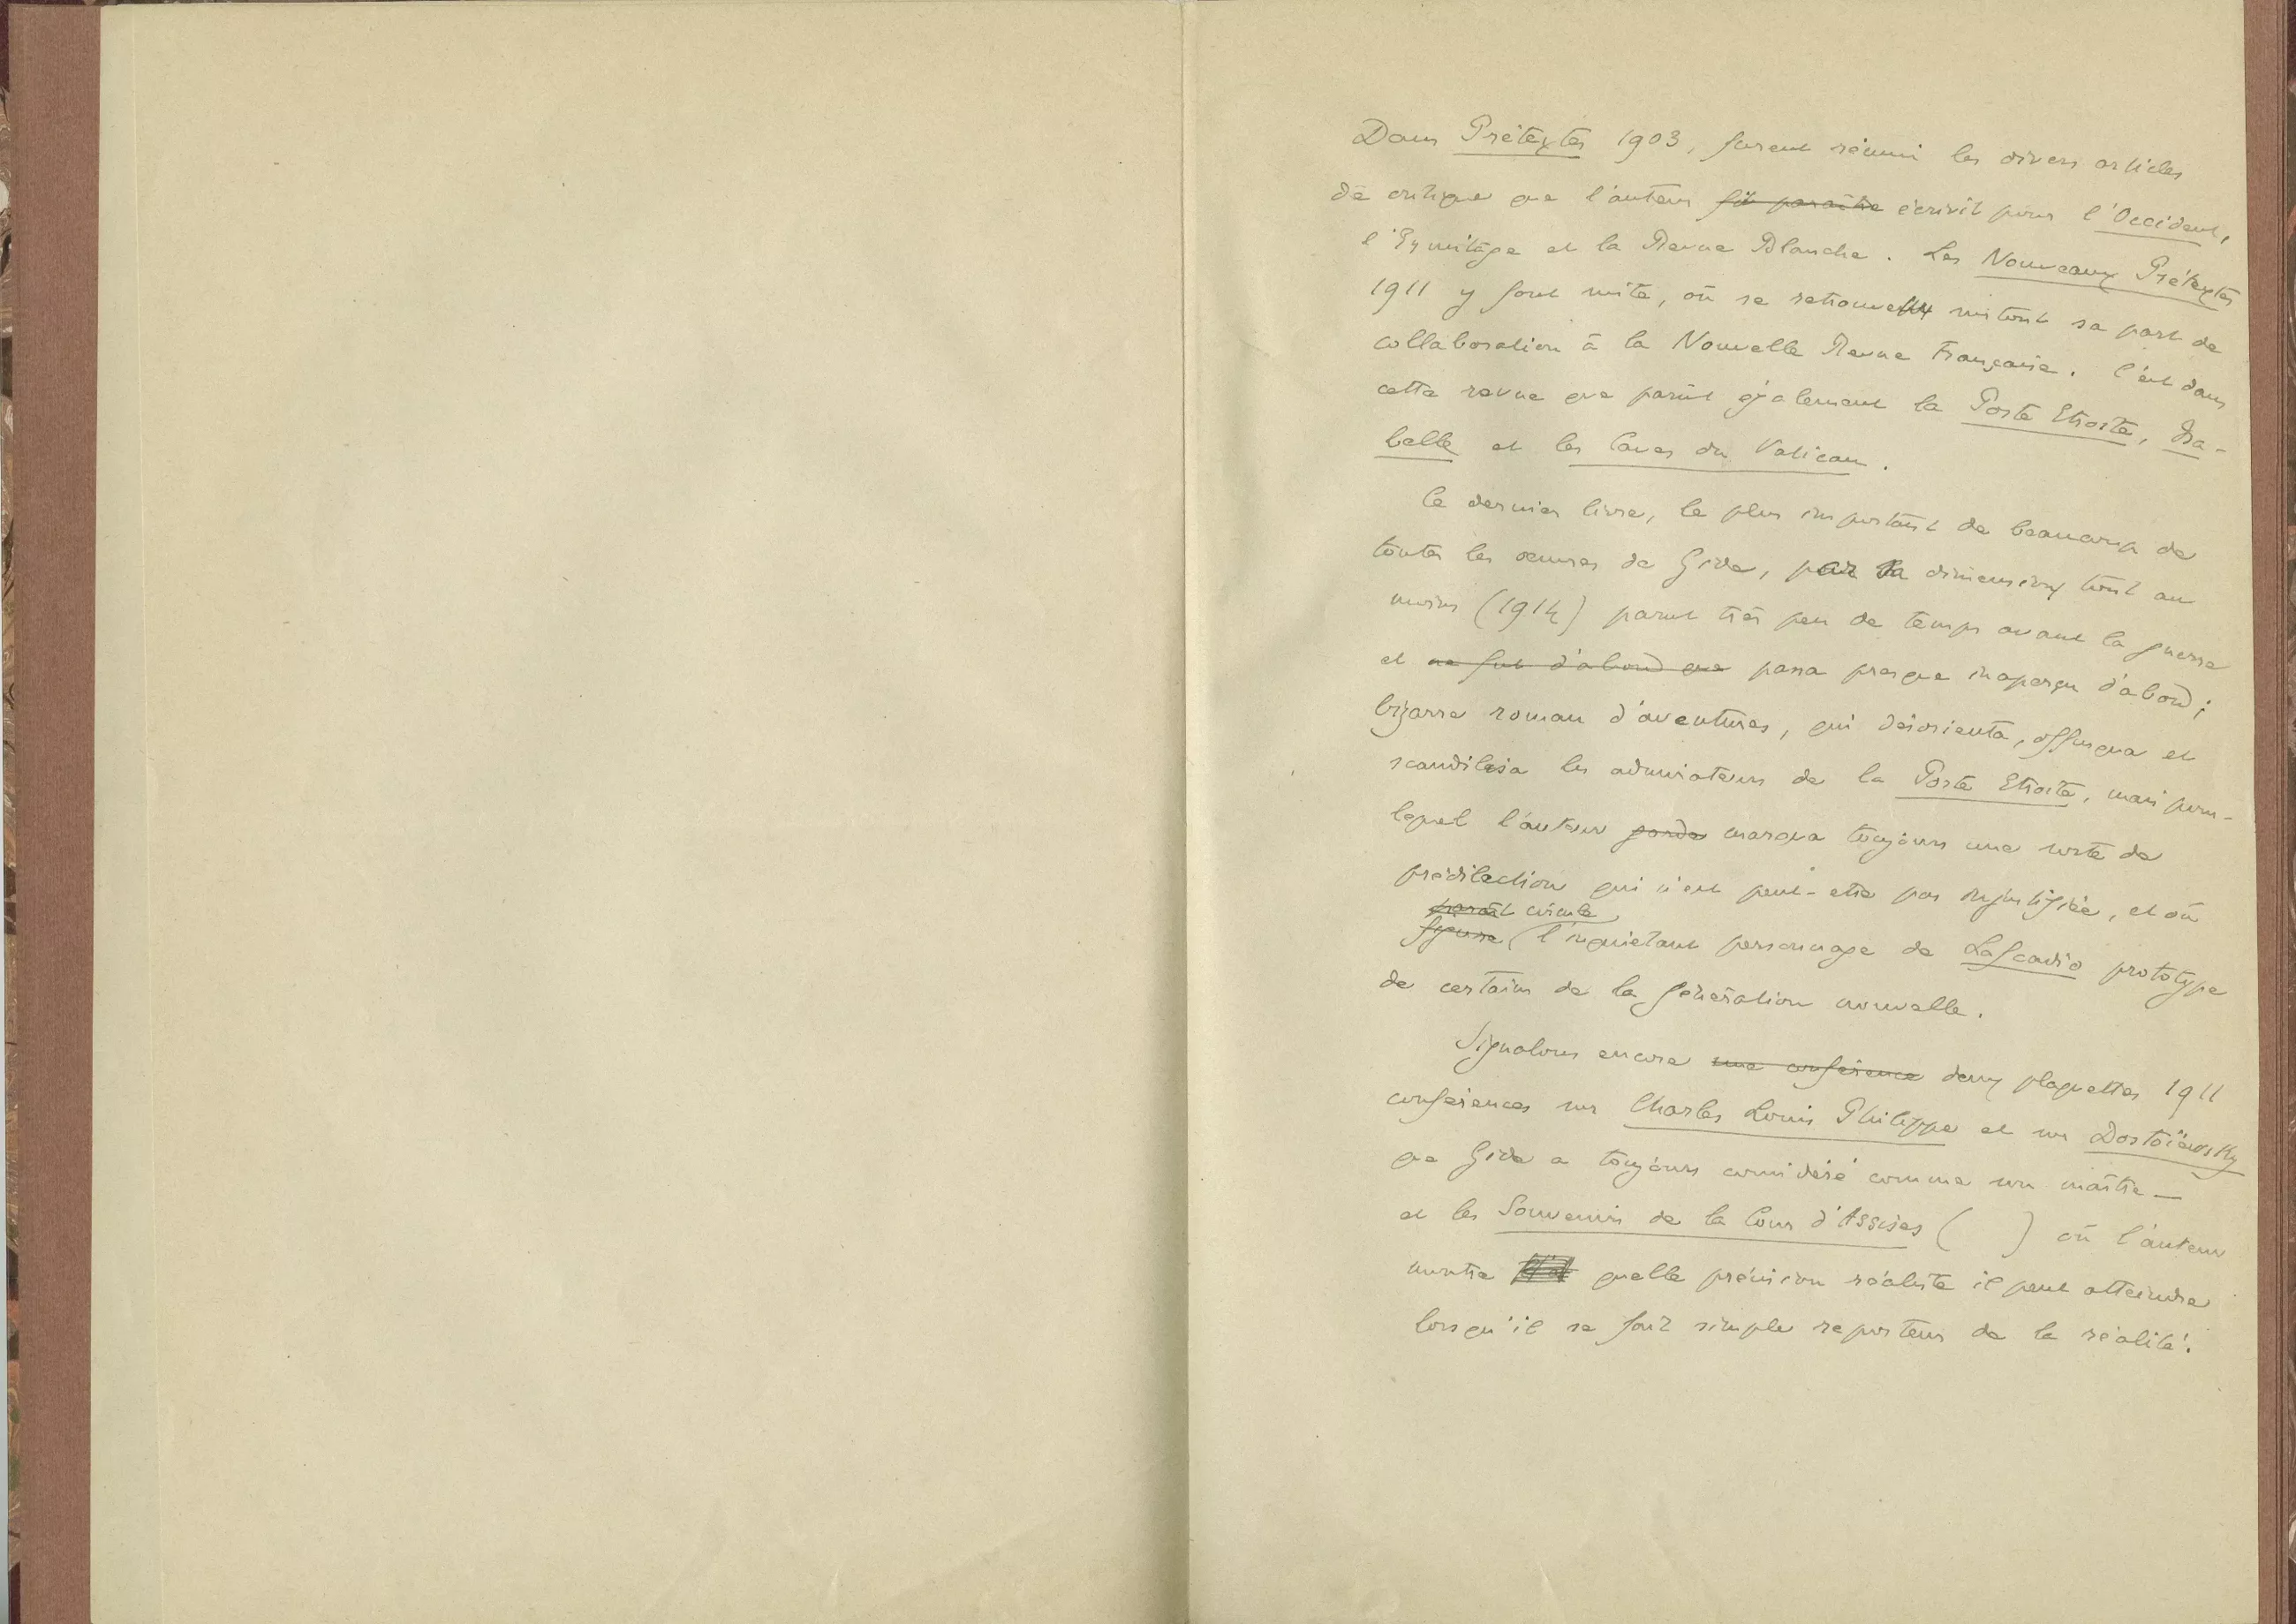 Dans Prétextes 1903, furent réuni les divers articles
de critique que l'auteur fit paraître écrivit pour l'Occident,
l'Ermitage et la Revue Blanche. Les Nouveaux Prétextes
1911 y font suite, où se retrouve surtout sa part de
collaboration à la Nouvelle Revue Française. C'est dans
cette revue que parut également la Porte Etroite, Isa-
belle et les Caves du Vatican.
Ce dernier livre, le plus important de beaucoup de
toutes les œuvres de Gide, par la dimension tout au
moins (1914) parut très peu de temps avant la guerre
et ne fut d'abord que passa presque inaperçu d'abord;
bizarre roman d'aventures, qui désorienta, offusqua et
scandilisa les admirateurs de la Porte Etroite, mais pour-
lequel l'auteur garda marqua toujours une sorte de
prédilection qui n'est peut-etre pas injustifiée, et où
paraît circule
figure l'inquiétant personnage de Lafcadio prototype
de certains de la génération nouvelle.
Signalons encore une conférence deux plaquettes 1911
conférences sur Charles Louis Philippe et sur Dostoïewsky
que Gide a toujours considéré comme un maître —
et les Souvenirs de la Cour d'Assises ( ) où l'auteur
montre quelle précision réaliste il peut atteindre
lorsqu'il se fait simple reporteur de la réalité.